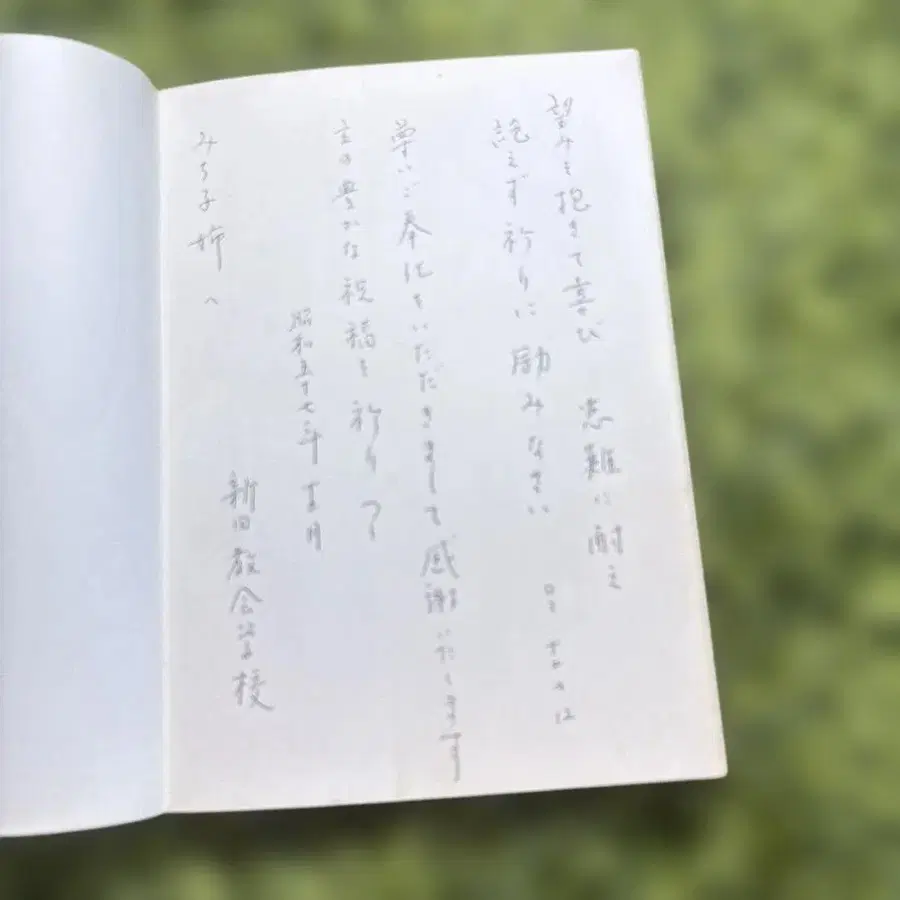 望みを抱きて喜び 患難に耐え
絶えず祈りに励みなさい
ロマ 十二の12
尊いご奉仕をいただきまして感謝いたします
主の豊かな祝福を祈りつつ
昭和五十七年 月
新田教会学校
みち子姉へ